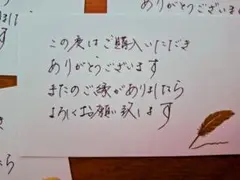 ありがとうございま
この度はご購入いただき
ありがとうございます
またのご縁がありましたら
よろしくお願い致します